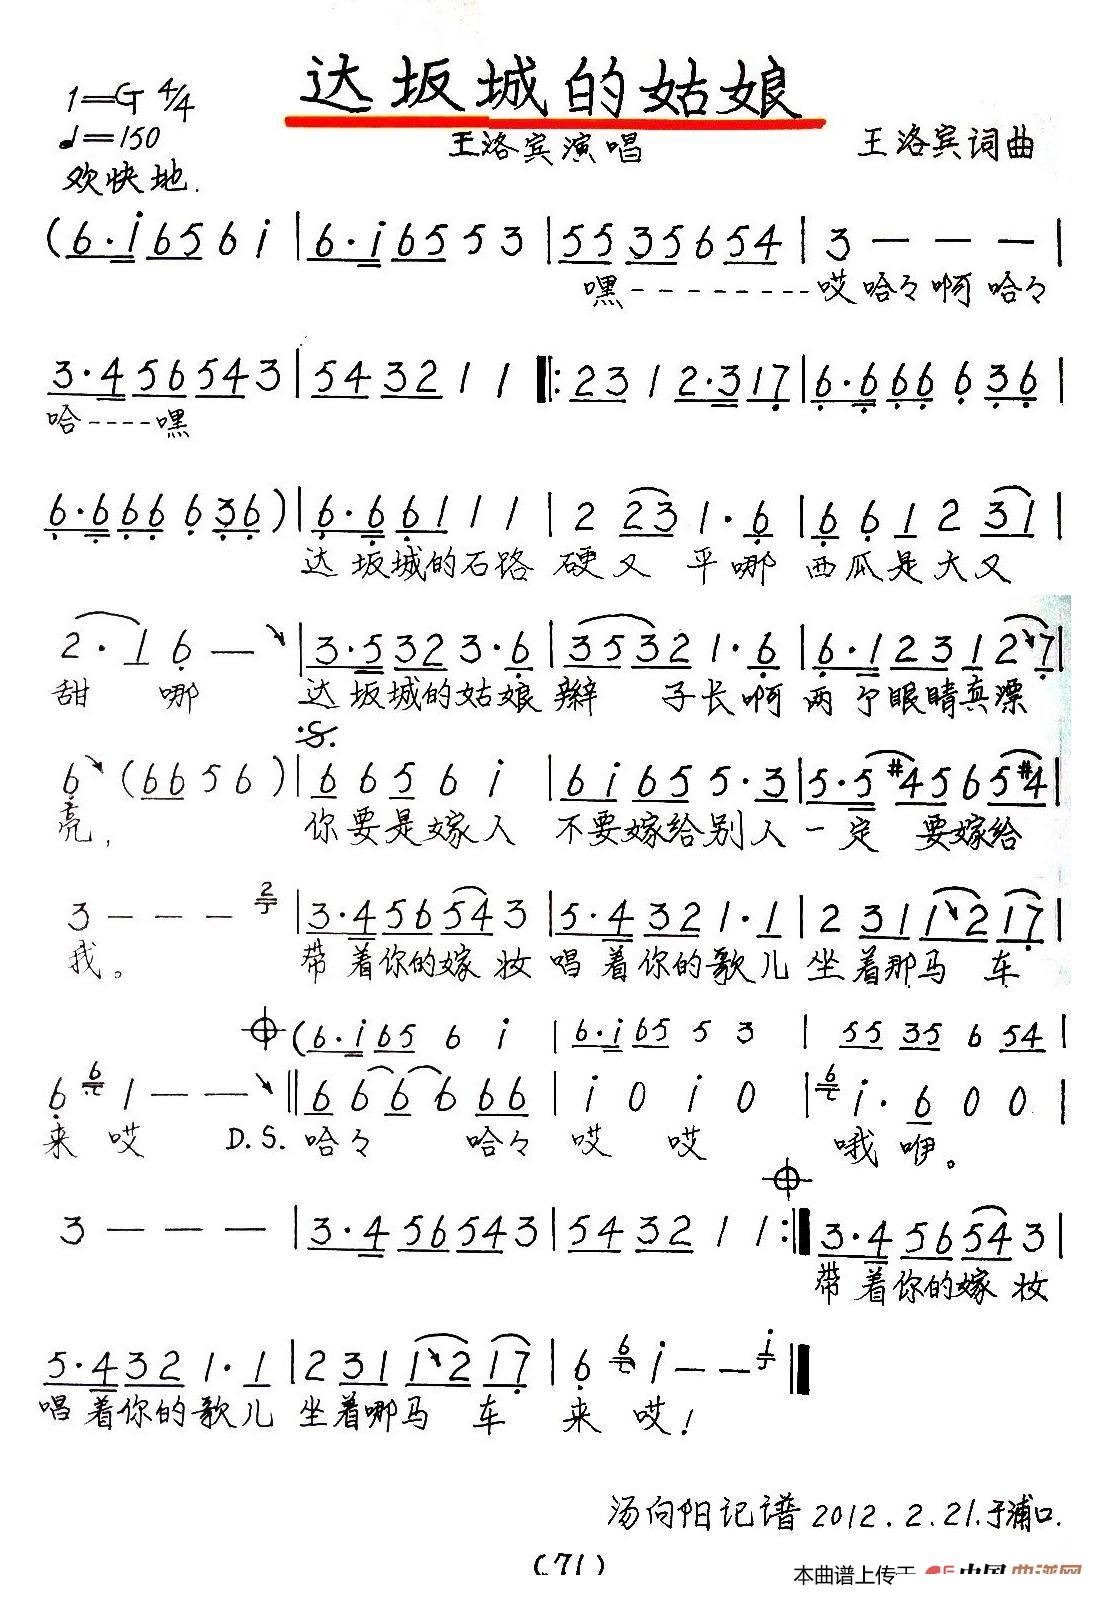 达坂城的姑娘
1=G 4/4
♩=150
王洛宾演唱
王洛宾词曲
欢快地.
(6·i 65 6 i | 6·i 65 5 3 | 55 35 6 54 | 3 — — — |
嘿---------哎哈々啊哈々
3·4 56 54 3 | 54 32 1 1 ‖: 23 1 2·3 17 | 6·6 66 6 36 |
哈----嘿
6·6 66 6 36 ) | 6·6 61 1 1 | 2 23 1·6 | 6 6 1 2 31 |
达坂城的石路 硬又 平哪 西瓜是大又
2·1 6 — | 3·5 32 3·6 | 35 32 1·6 | 6·1 23 1 27 |
甜 哪 达坂城的姑娘辫 子长啊两个眼睛真漂
𝄋
6 (66 5 6 ) | 6 6 5 6 i | 6 i 65 5·3 | 5·5 #45 6 5#4 |
亮, 你要是嫁人 不要嫁给别人一定 要嫁给
3 — — — 2 | 3·4 56 54 3 | 5·4 32 1·1 | 2 31 12 17 |
我。 带着你的嫁妆 唱着你的歌儿 坐着那马车
(6·i 65 6 i | 6·i 65 5 3 | 55 35 6 54 |
6 6 1 — — ‖ 6 6 6 6 66 | i 0 i 0 | 6 i·6 0 0 |
来 哎 D.S. 哈々 哈々 哎 哎 哦咿。
3 — — — | 3·4 56 54 3 | 54 32 1 1 :‖ 3·4 56 54 3 |
带着你的嫁妆
5·4 32 1·1 | 2 31 12 17 | 6 6 i — — i ‖
唱着你的歌儿 坐着哪马 车 来 哎!
汤向阳记谱2012.2.21.于浦口.
(71)
本曲谱上传于 中国曲谱网